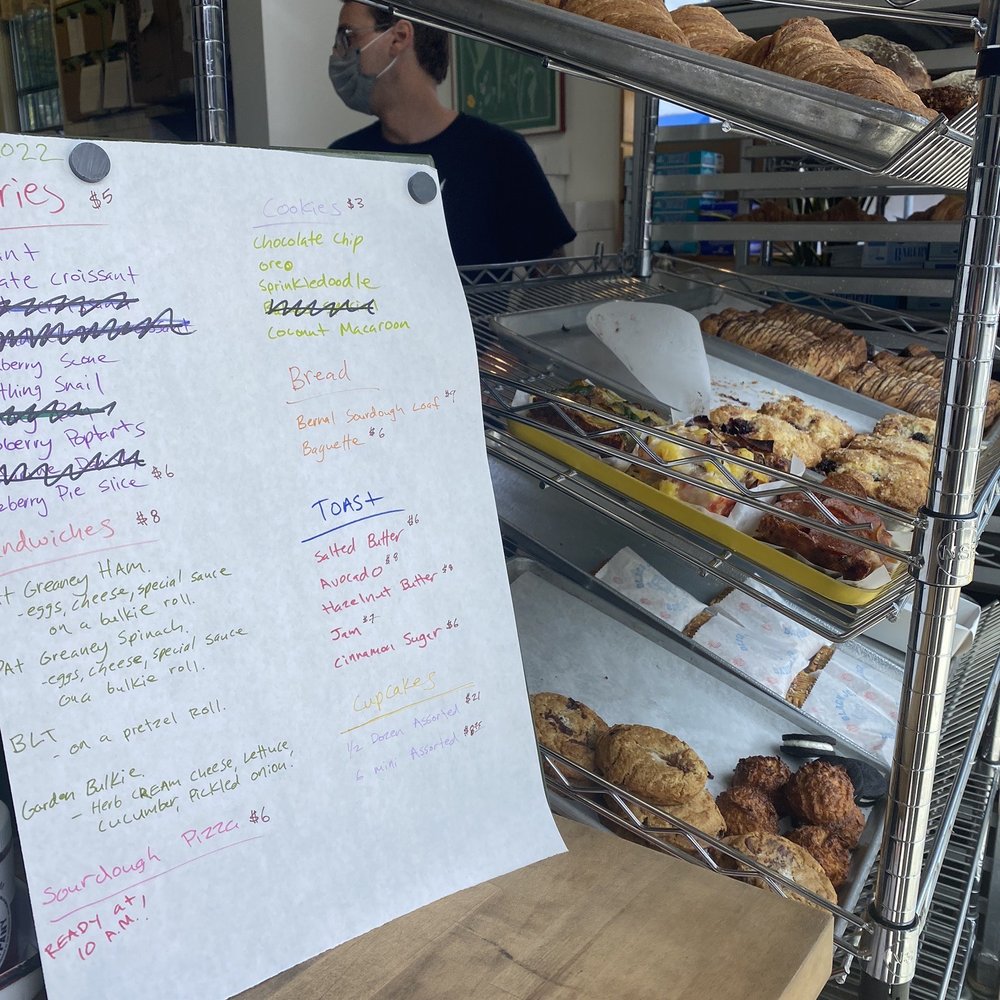 2022
ries $5
ant
ate croissant
berry Scone
thing Snail
berry Poptarts
eberry Pie Slice $6
ndwiches $8
t Greaney Ham.
-eggs, cheese, special sauce
on a bulkie roll.
PAt Greaney Spinach.
-eggs, cheese, special sauce
on a bulkie roll.
BLT
- on a pretzel Roll.
Garden Bulkie.
- Herb CREAM cheese, Lettuce,
cucumber, pickled onion.
Sourdough Pizza $6
READY at
10 A.M.!
Cookies $3
Chocolate Chip
oreo
Sprinkledoodle
Coconut Macaroon
Bread
Bernal Sourdough Loaf $9
Baguette $6
TOASt
Salted Butter $6
Avocado $9
Hazelnut Butter $8
Jam $7
Cinnamon Sugar $6
Cupcakes
1/2 Dozen Assorted $21
6 mini Assorted
NSF